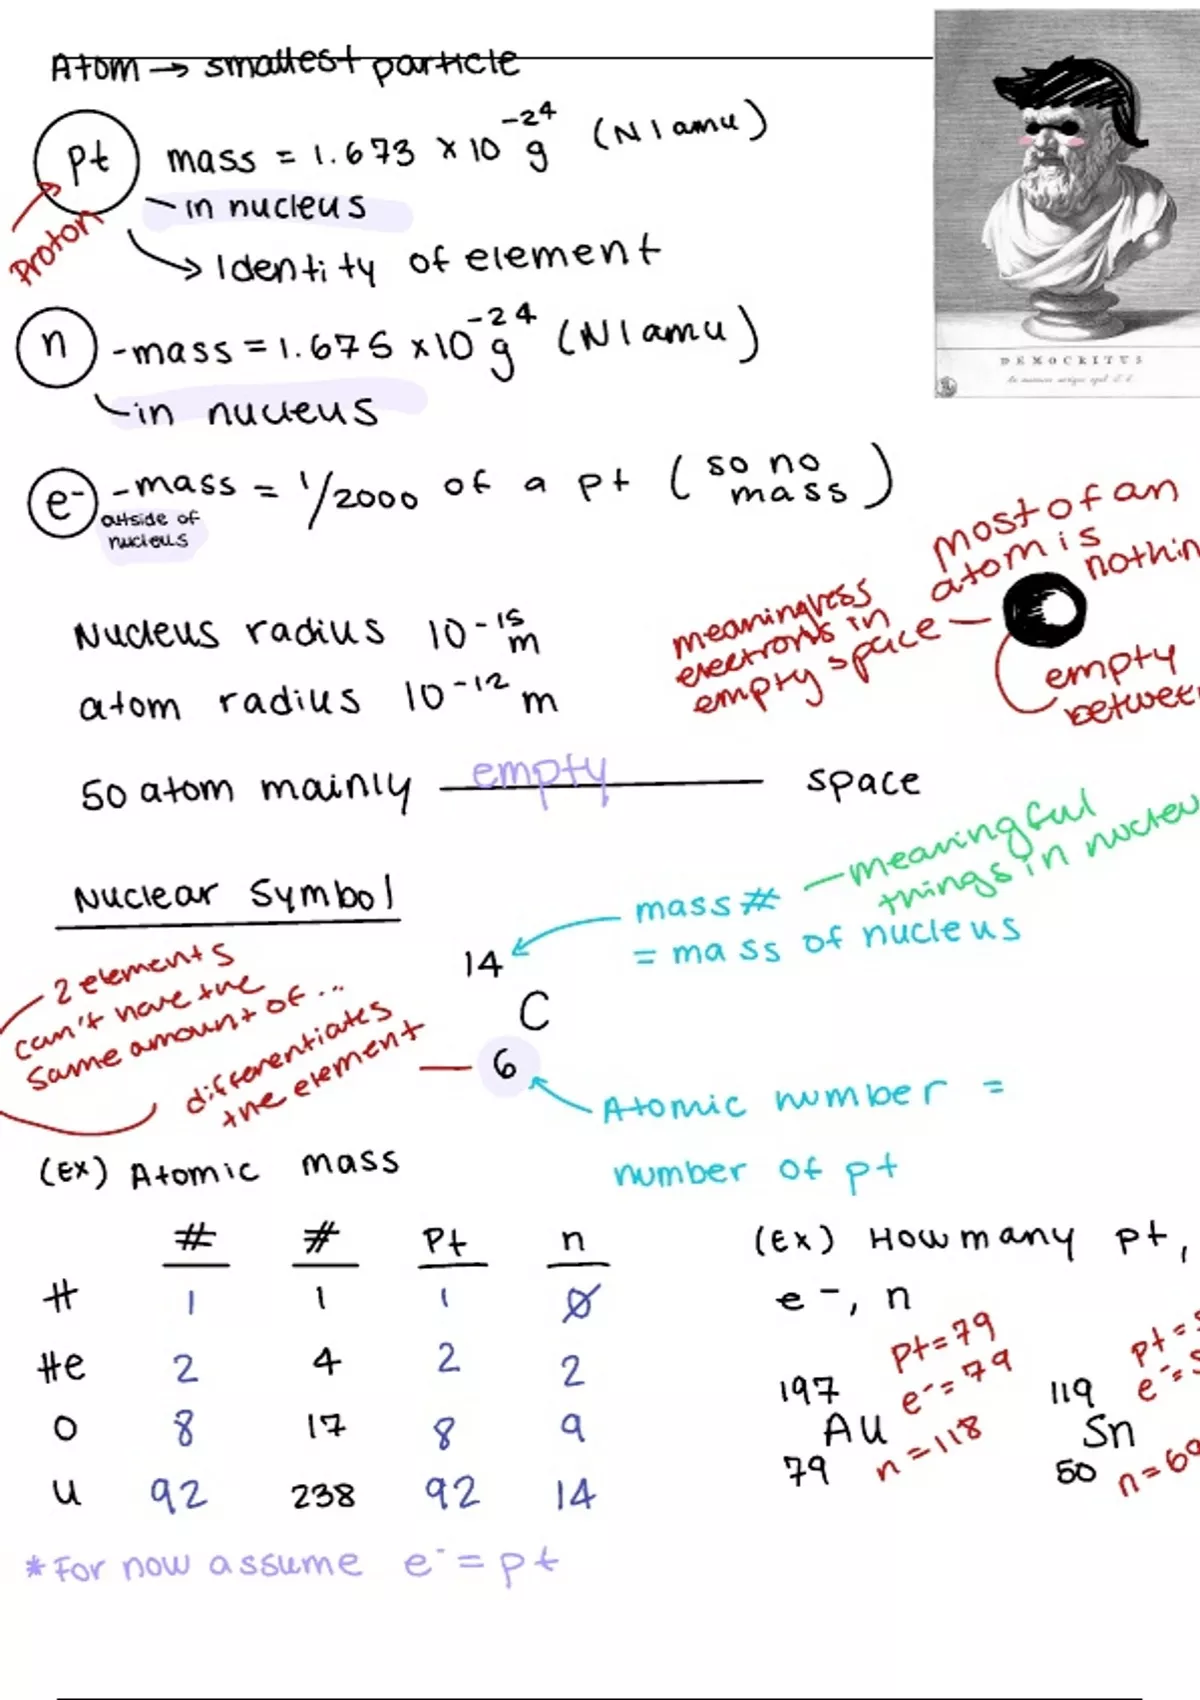 Atom → smallest particle
pt mass = 1.673 x 10⁻²⁴ g (N 1 amu)
Proton
- in nucleus
→ Identity of element
n - mass = 1.675 x 10⁻²⁴ g (N 1 amu)
in nucleus
e⁻ - mass = 1/2000 of a pt (so no mass)
outside of
nucleus
DEMOCRITUS
most of an
atom is
nothin
meaningless
electrons in
empty space
empty
between
Nucleus radius 10⁻¹⁵ m
atom radius 10⁻¹² m
so atom mainly empty space
Nuclear Symbol
mass #
= mass of nucleus
- meaningful
things in nucleu
- 2 elements
can't have the
same amount of ...
differentiates
the element
14
C
6
Atomic number =
number of pt
(Ex) Atomic mass
# # Pt n
H 1 1 1 0
He 2 4 2 2
O 8 17 8 9
U 92 238 92 14
* For now assume e⁻ = pt
(Ex) How many pt,
e⁻, n
197
Au
79
pt = 79
e⁻ = 79
n = 118
119
Sn
50
pt =
e⁻ =
n = 69